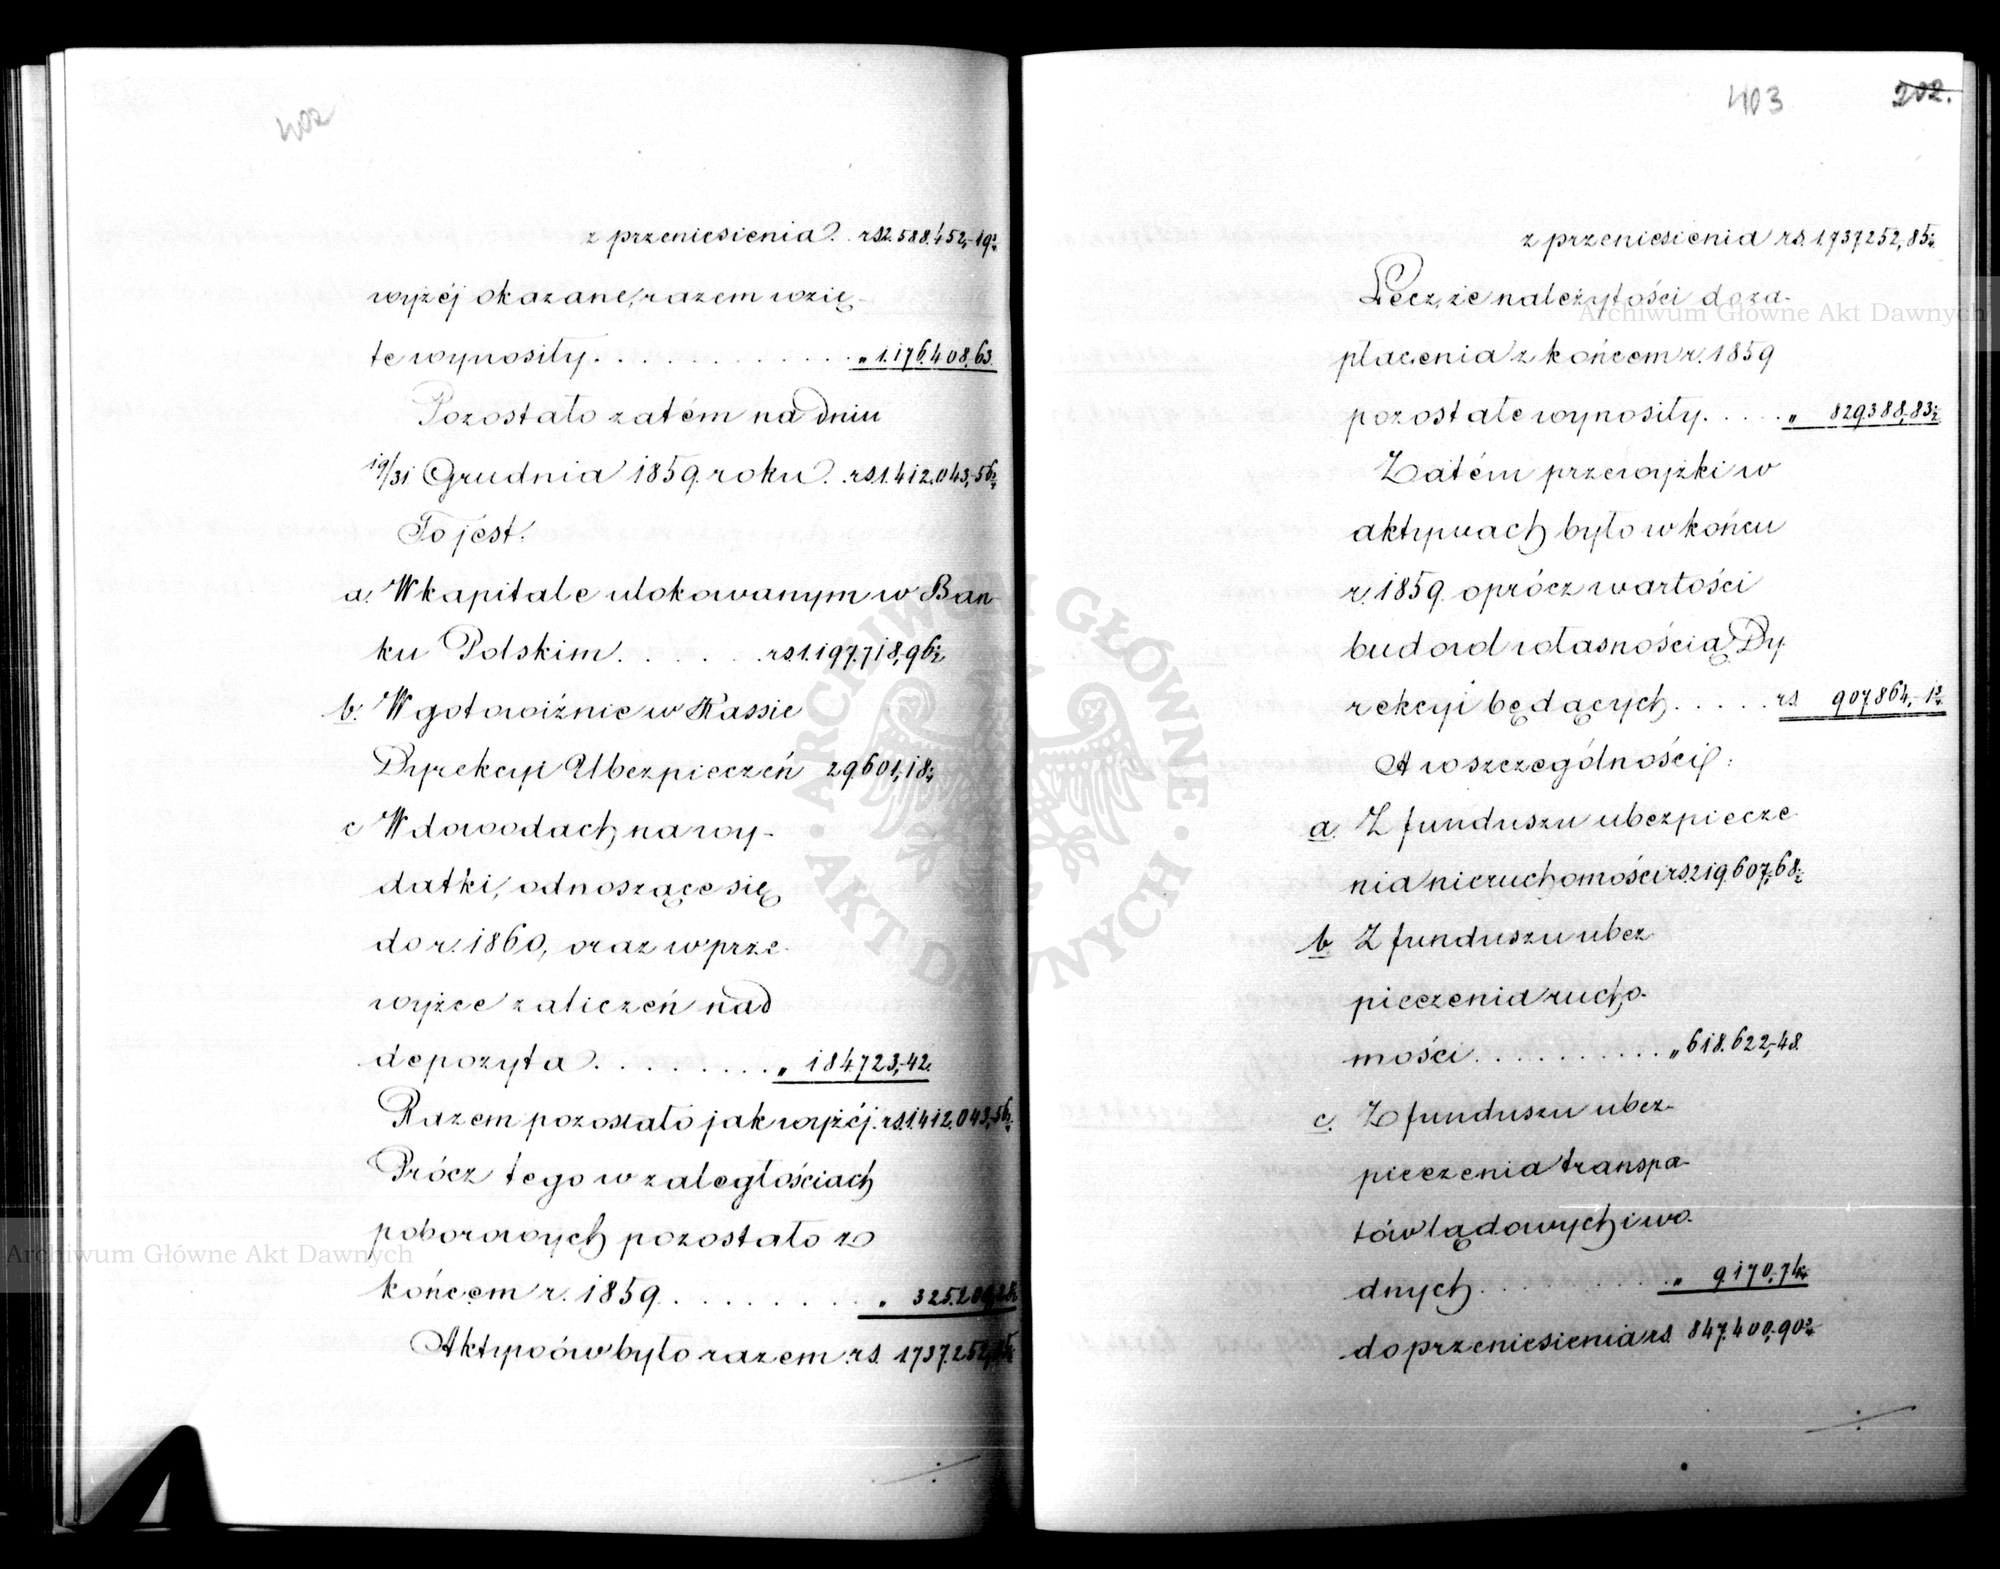 402
z przeniesienia . rs 2.588.452,-19½
wyżéj okazane, razem wzię-
te wynosiły . . . . . . . . . . . . „ 1.176.408,63.
Pozostało zatém na dniu
19/31 Grudnia 1859. roku . rs. 1.412.043,-56½
To jest:
a. W kapitale ulokowanym w Ban-
ku Polskim . . . . . . rs. 1.197.718,96½
b. W gotowiźnie w Kassie
Dyrekcyi Ubezpieczeń 29601,18
c W dowodach na wy-
datki, odnoszące się
do r. 1860, oraz w prze-
wyżce zaliczeń nad
depozyta . . . . . . . . „ 184723,-42.
Razem pozostało jak wyżéj. rs. 1.412.043,-56½
Prócz tego w zaległościach
poborowych pozostało z
końcem r. 1859. . . . . . . . . „ 325.209,28½
Aktywów było razem .rs. 1737.252,85
403
202.
z przeniesienia rs. 1.737252,85
Lecz, że należytości do za-
płacenia z końcem r. 1859
pozostałe wynosiły. . . . . „ 829388,-83½
Zatém przewyżki w
aktywach było w końcu
r. 1859. oprócz wartości
budowl własnością Dy-
rekcyi będących . . . . . rs. 907.864,-1¾
A w szczególności:
a. Z funduszu ubezpiecze-
nia nieruchomości rs. 219.607,68½
b. Z funduszu ubez-
pieczenia rucho-
mości . . . . . . . . . . . „ 618.622,-48.
c. Z funduszu ubez-
pieczenia transpa-
tów lądowych i wo-
dnych . . . . . . . . . . „ 9.170,-74
do przeniesienia rs. 847.400,-90
Archiwum Główne Akt Dawnych
Archiwum Główne Akt Dawnych
ARCHIWUM GŁÓWNE · AKT DAWNYCH ·